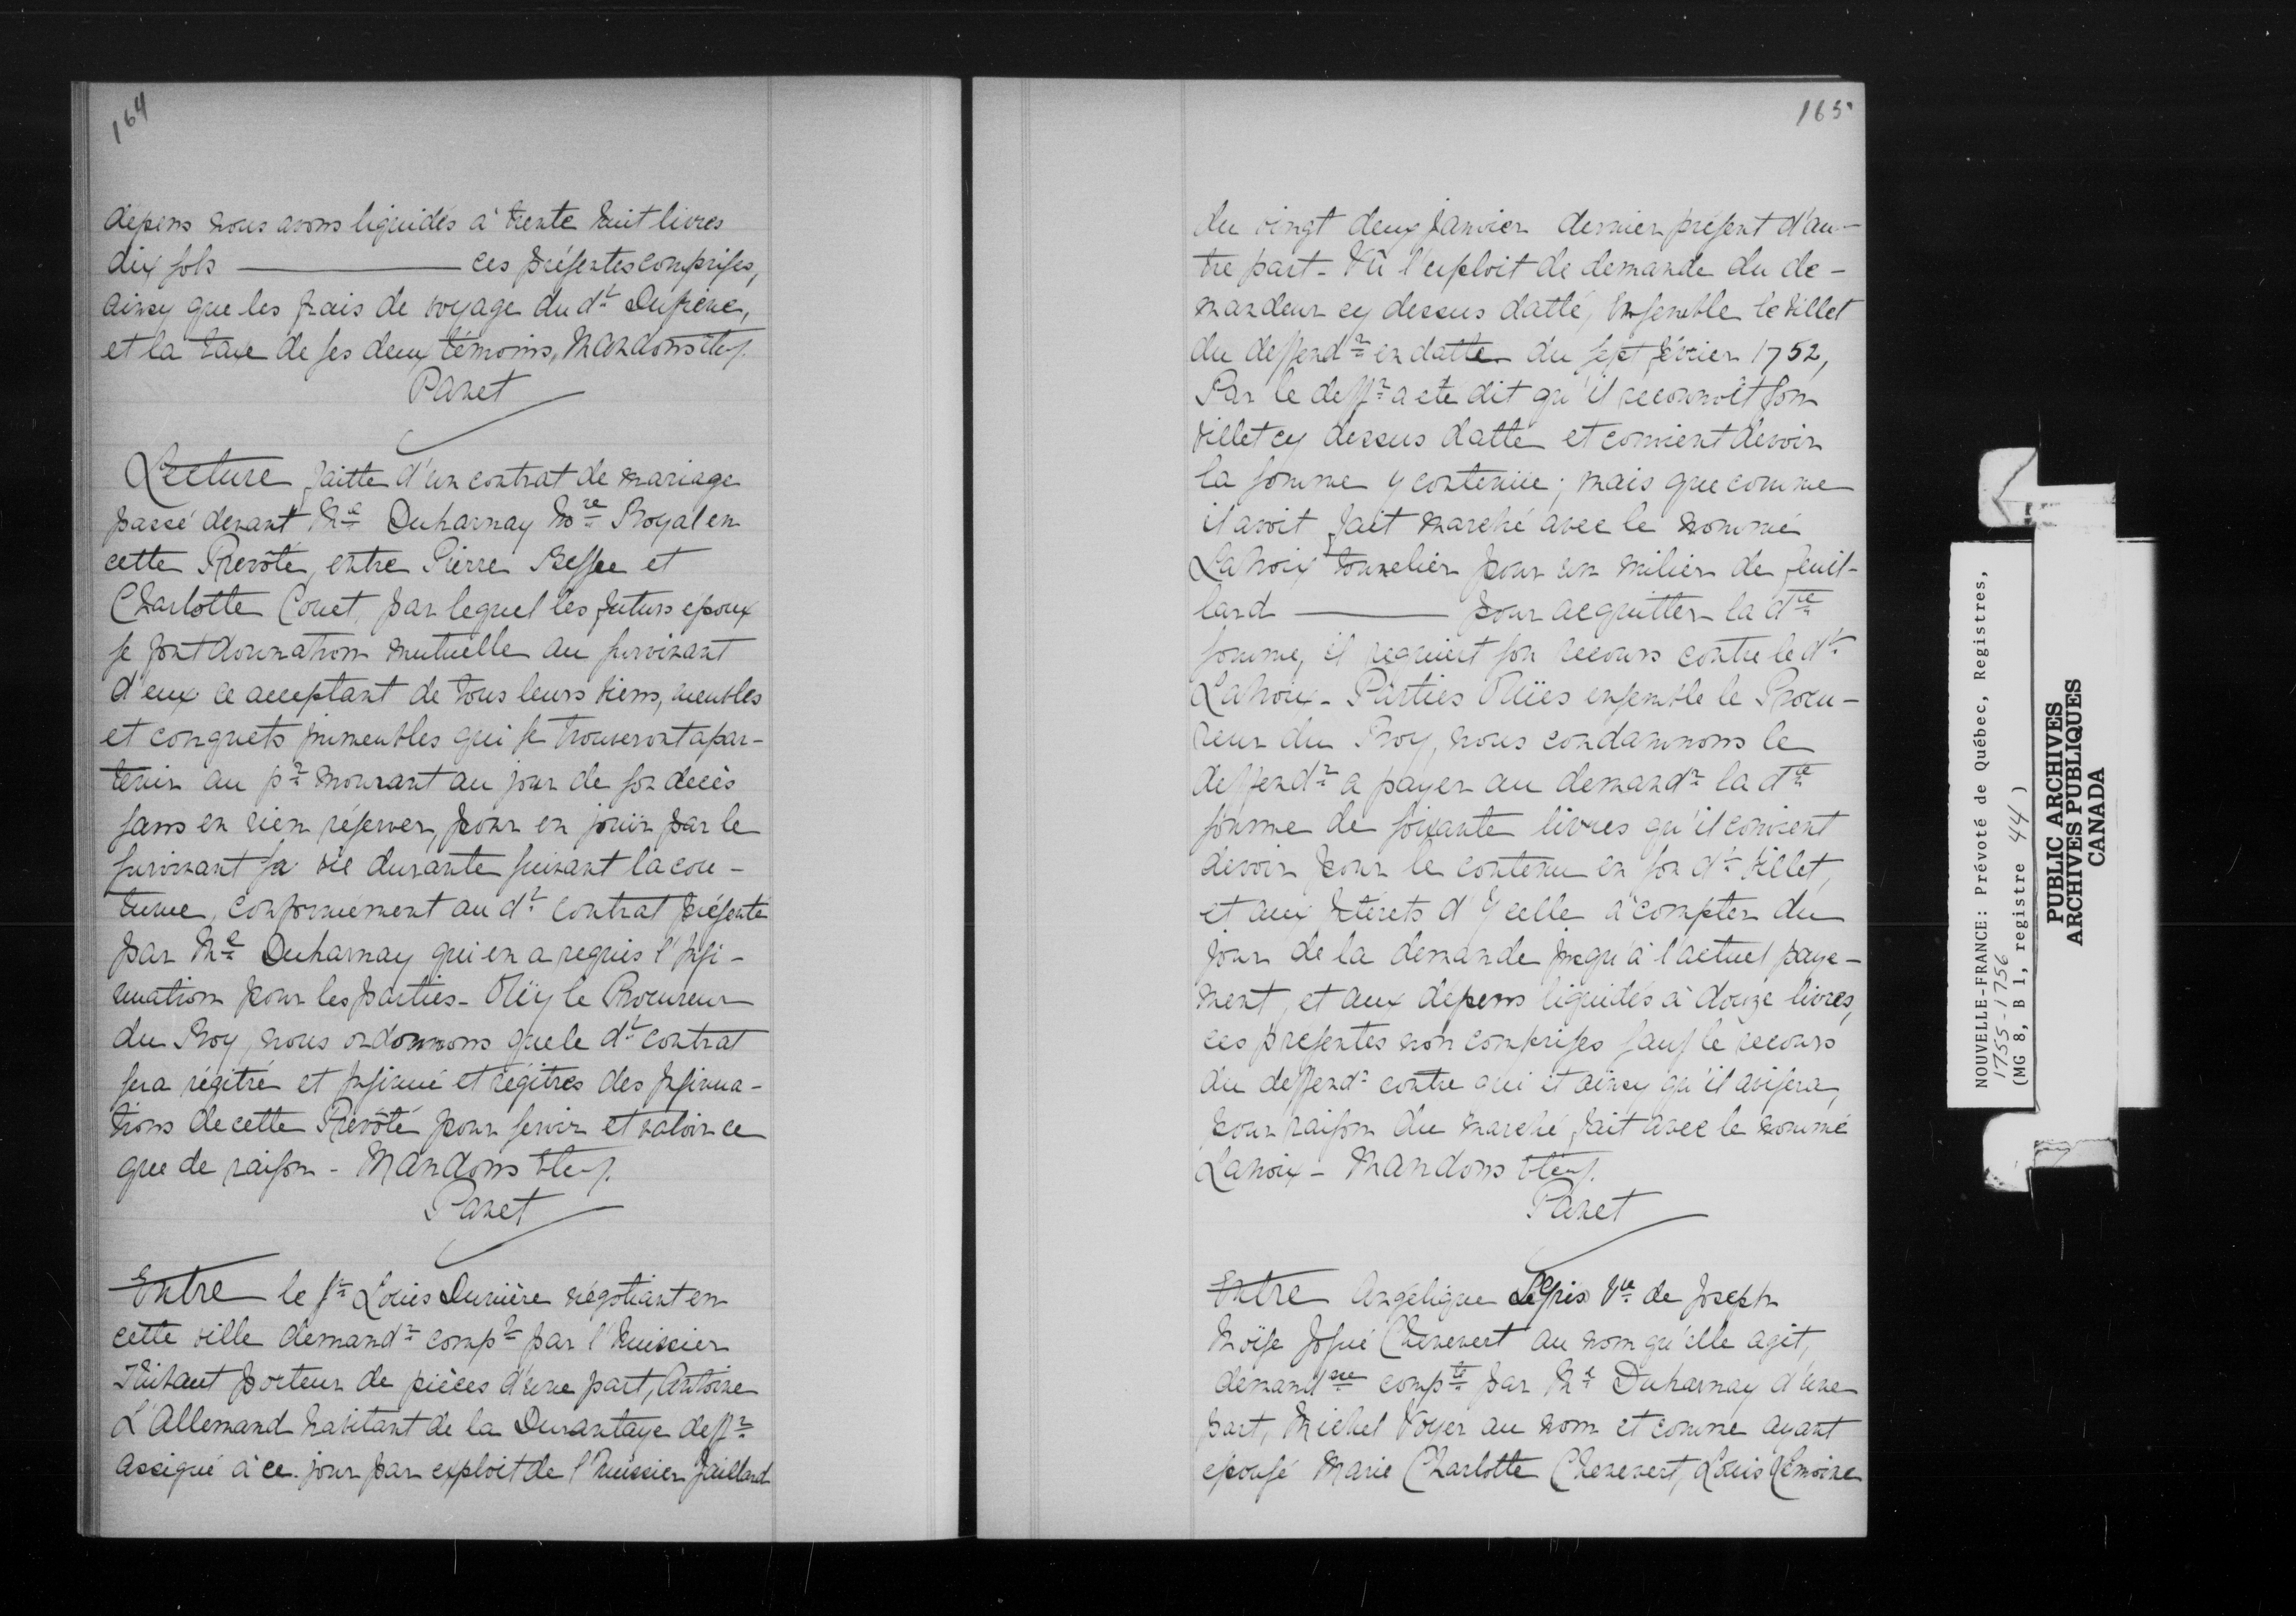 164
dépens nous avons liquidés à trente huit livres
dix sols ——— ces présentes comprises,
ainsy que les frais de voyage du dt Dufrene,
et la taxe de ses deux témoins, Mandons &c.
Panet
Lecture faitte d'un contrat de mariage
passé devant Me Duharnay Nore Royal en
cette Prevôté, entre Pierre Bessee et
Charlotte Couet, par lequel les futurs epoux
se font dounation mutuelle au survivant
d'eux ce acceptant de tous leurs biens, meubles
et conquets immeubles qui se trouveront apar-
tenir au pr mourant au jour de son decès
sans en rien réserver, pour en jouir par le
survivant sa vie durante suivant la cou-
tume, conformément au dt contrat présenté
par Me Duharnay qui en a requis l'insi-
nuation pour les parties - Oüy le Procureur
du Roy, nous ordonnons que le dt contrat
sera régitré et insinué et régitres des insinua-
tions de cette Prevôté pour servir et valoir ce
que de raison - Mandons &c.
Panet
Entre le Sr Louis Dunière négotiant en
cette ville demandr compt par l'huissier
Thibault porteur de pièces d'une part, Antoine
L'Allemand habitant de la Durantaye deffr
assigné à ce jour par exploit de l'huissier Gaillard
165
du vingt deux Janvier dernier présent d'au-
tre part - Vû l'exploit de demande du de-
mandeur cy dessus datté, Ensemble le billet
du deffendr en datte du sept février 1752,
Par le deffr a eté dit qu'il reconnoît son
billet cy dessus datté et convient devoir
la somme y contenüe; mais que comme
il avoit fait marché avec le nommé
Lanoix tonnelier pour un milier de feuil-
lard ——— pour acquitter la dte
somme, il requiert son recours contre le dt
Lanoix - Parties Oüies ensemble le Procu-
reur du Roy, nous condamnons le
deffendr a payer au demandr la dte
somme de soixante livres qu'il convient
devoir pour le contenu en son dt billet,
et aux Interets d'Ycelle à compter du
jour de la demande jusqu'à l'actuel paye-
ment, et aux dépens liquidés à douze livres,
ces presentes non comprises sauf le recours
du deffendr contre qui et ainsy qu'il avisera,
pour raison du marché fait avec le nommé
Lanoix - Mandons &c.
Panet
Entre Angélique Legris Vve de Joseph
Moïse Josué Chenevert au nom qu'elle agit,
demandsse compte par Me Duharnay d'une
part, Michel Voyer au nom et comme ayant
epousé Marie Charlotte Chenevert, Louis Lemoine
NOUVELLE-FRANCE: Prévoté de Québec, Registres,
1755-1756
(MG 8, B 1, registre 44)
PUBLIC ARCHIVES
ARCHIVES PUBLIQUES
CANADA